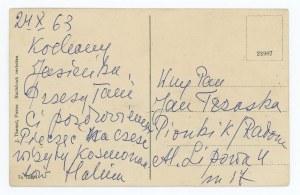 24 X 63
Kochany
Jasieńku
Przesyłam
Ci pozdrowienia
Pieczęć na cześć
wizyty kosmonau
tów Halina
28967
WPan
Jan Trzaska
Pionki k/Radomia
Al. Lipowa 4
m 17